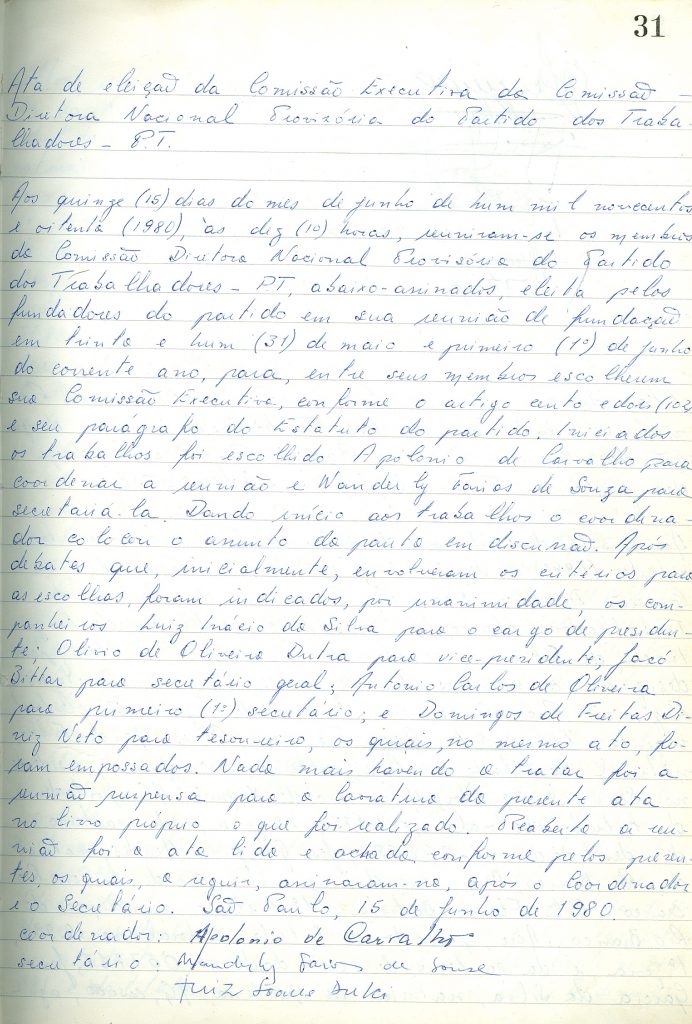 31
Ata de eleição da Comissão Executiva da Comissão -
Diretora Nacional Provisória do Partido dos Traba-
lhadores - P.T.
Aos quinze (15) dias do mês de junho de hum mil novecentos
e oitenta (1980), às dez (10) horas, reuniram-se os membros
da Comissão Diretora Nacional Provisória do Partido
dos Trabalhadores - PT, abaixo-assinados, eleita pelos
fundadores do partido em sua reunião de fundação
em trinta e hum (31) de maio e primeiro (1º) de junho
do corrente ano, para, entre seus membros escolherem
sua Comissão Executiva, conforme o artigo cento e dois (102)
e seu parágrafo do Estatuto do partido. Iniciados
os trabalhos foi escolhido Apolonio de Carvalho para
coordenar a reunião e Wanderly Farias de Souza para
secretaria-la. Dando início aos trabalhos o coordena-
dor colocou o assunto da pauta em discussão. Após
debates que, inicialmente, envolveram os critérios para
as escolhas, foram indicados, por unanimidade, os com-
panheiros Luiz Inácio da Silva para o cargo de presiden-
te; Olivio de Oliveira Dutra para vice-presidente; Jacó
Bittar para secretário geral; Antonio Carlos de Oliveira
para primeiro (1º) secretário; e Domingos de Freitas Di-
niz Neto para tesoureiro, os quais, no mesmo ato, fo-
ram empossados. Nada mais havendo a tratar foi a
reunião suspensa para a lavratura da presente ata
no livro próprio o que foi realizado. Reaberta a reu-
nião foi a ata lida e achada conforme pelos presen-
tes, os quais, a seguir, assinaram-na, após o Coordenador
e o Secretário. São Paulo, 15 de junho de 1980.
coordenador: Apolonio de Carvalho
secretário: Wanderly Farias de Souza
Luiz Soares Dulci